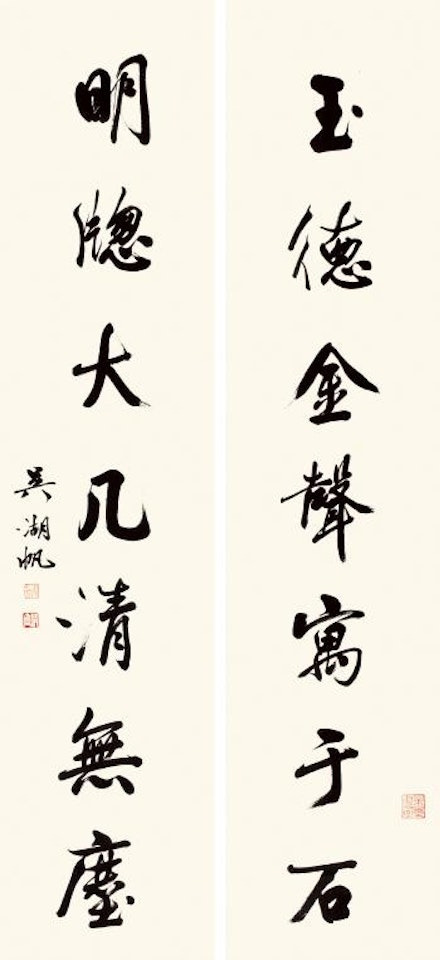 玉德金聲寓于石
明牕大几清無塵
吳湖帆